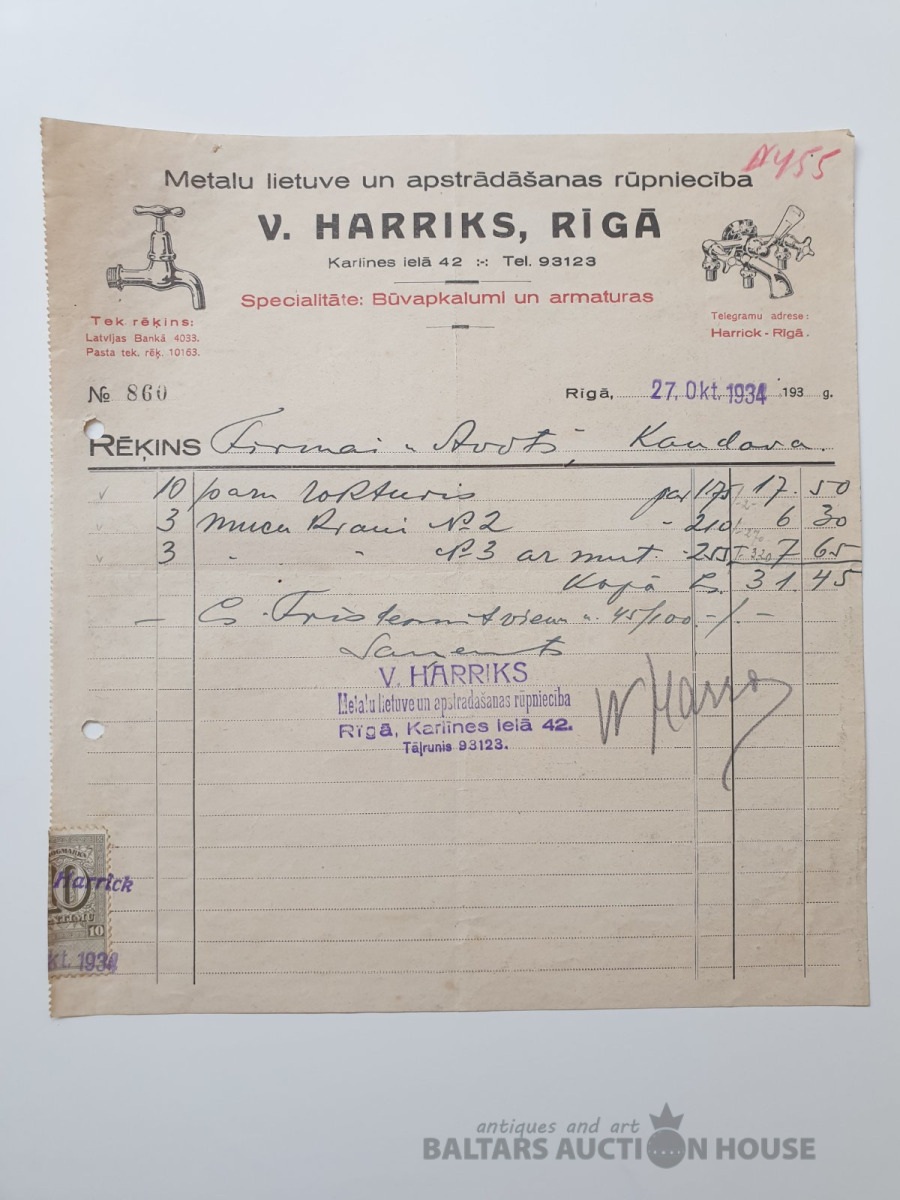 № 455
Metalu lietuve un apstrādāšanas rūpniecība
V. HARRIKS, RĪGĀ
Karlīnes ielā 42 :-: Tel. 93123
Specialitāte: Būvapkalumi un armaturas
Tek. rēķins:
Latvijas Bankā 4033.
Pasta tek. rēķ. 10163.
Telegramu adrese:
Harrick - Rīgā.
№ 860
Rīgā, 27. Okt. 1934 193 g.
RĒĶINS Firmai „Avots", Kandava.
10 paru rokturis par 175 17. 50
3 mucu krani № 2 " 210 6 30
3 " " № 3 ar 255 7 65
Kopā Ls. 31. 45
— Ls. Trīsdesmitvien u. 45/100.-/.-
Saņemts
V. HARRIKS
Metaļu lietuve un apstrādāšanas rūpniecība
Rīgā, Karlīnes ielā 42.
Tāļrunis 93123.
10
Harrick
10
kt. 1934
antiques and art
BALTARS AUCTION HOUSE